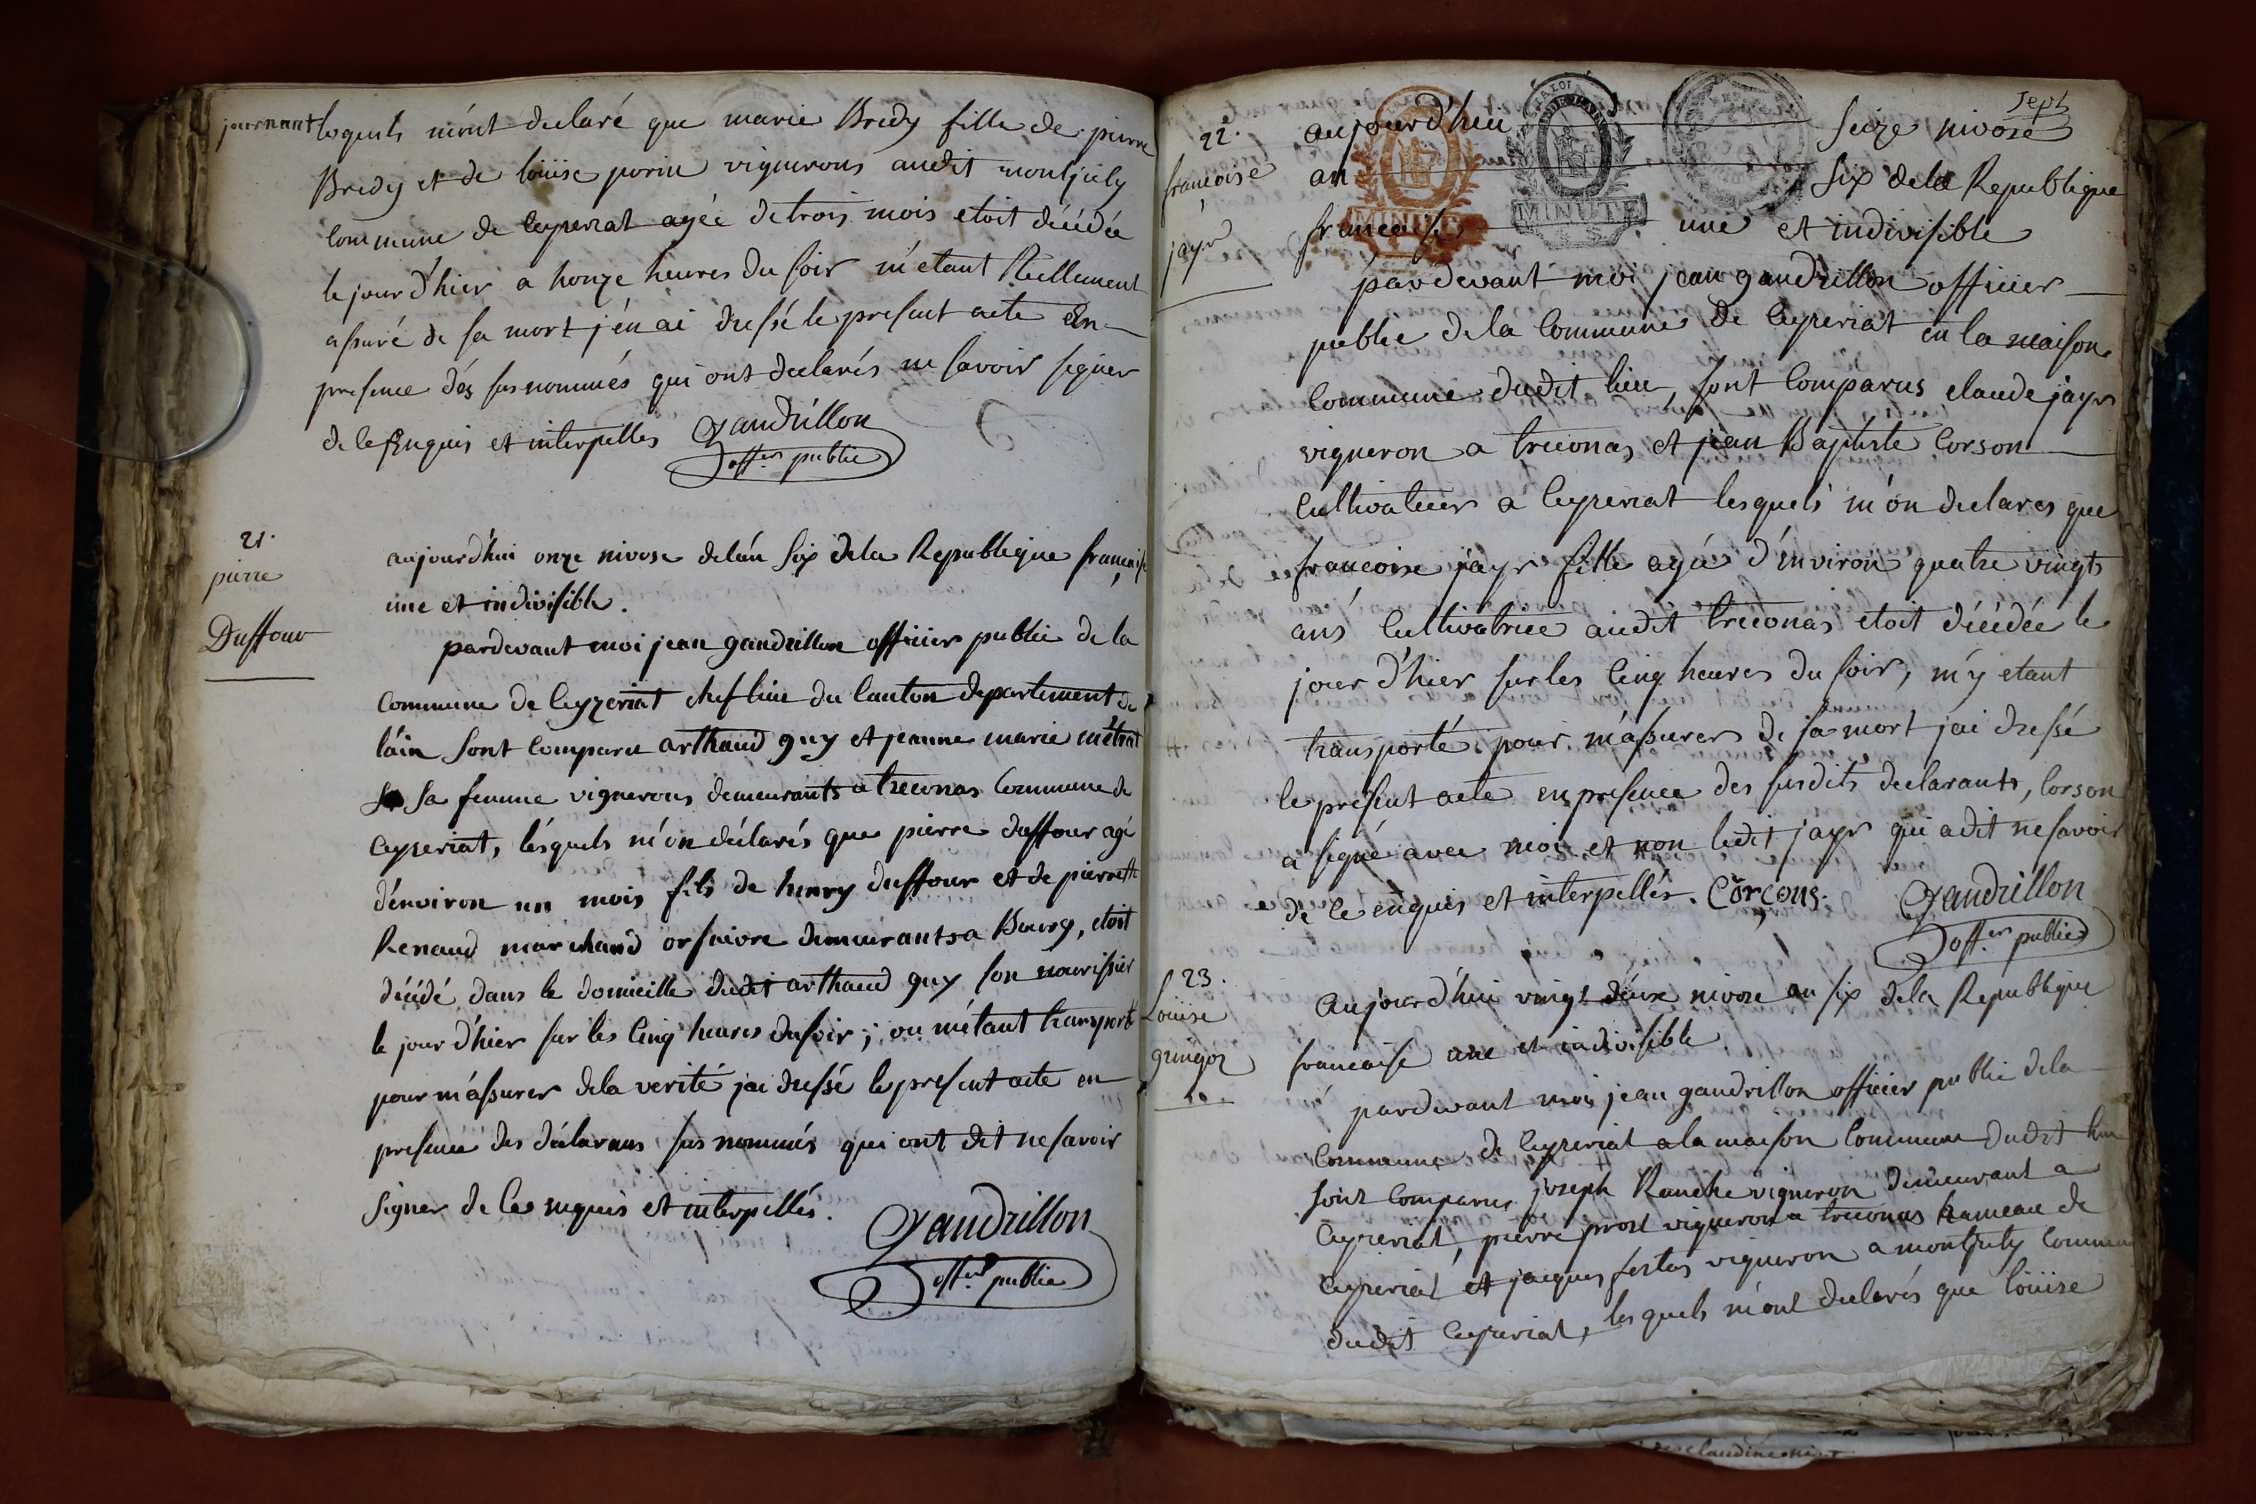 journant lesquels m'ont declaré que marie Bredy fille de pierre
Bredy et de loüise porin vignerons audit montjuly
Commune de Ceyzeriat agée de trois mois etoit décédée
le jour d'hier a honze heures du soir m'etant Réellement
assuré de sa mort j'en ai dressé le present acte en
presence dés susnommés qui ont declarés ne savoir signer
de ce Enquis et interpellés Gandrillon
offer. public
21.
pierre
Duffour
aujourd'hui onze nivose de l'an six de la Republique française
une et indivisible.
pardevant moi jean gandrillon officier public de la
Commune de Ceyzeriat cheflieu du Canton departement de
l'ain sont Comparu arthaud guy et jeanne marie métrat
sa femme vignerons demeurants a treconas Commune de
Ceyzeriat, lésquels m'on déclarés que pierre duffour agé
d'environ un mois fils de henry duffour et de pierrette
Renaud marchand orfaivre demeurants a Bourg, etoit
décédé dans le domicille dudit arthaud guy son nourissier
le jour d'hier sur les Cinq heures du soir; ou m'étant transporté
pour m'assurer de la verité jai dressé le present acte en
presence des déclarans sus nommés qui ont dit ne savoir
signer de Ce enquis et interpellés.
Gandrillon
offer. public
sept
22.
francoise
jayr
aujourd'hui seize nivose
an six de la Republique
francaise une et indivisible
MINUTE
pardevant moi jean gandrillon officier
public de la Commune de Ceyzeriat en la maison
Commune dudit lieu, sont Comparus claude jayr
vigneron a treconas et jean Baptiste Corson
Cultivateur a Ceyzeriat lesquels m'on declares que
francoise jayr fille agée d'environ quatre vingts
ans Cultivatrice audit treconas etoit décédée le
jour d'hier sur les Cinq heures du soir, m'y etant
transporté pour m'assurer de sa mort jai dressé
le présent acte en presence des susdits declarants, Corson
a signé avec moi et non ledit jayr qui a dit ne savoir
de ce enquis et interpellés. Corçons. Gandrillon
offer. public
23.
Loüise
gringoz
Aujourd'hui vingt déux nivose an six de la Republique
francaise une et indivisible
pardevant moi jean gandrillon officier public de la
Commune de Ceyzeriat a la maison Commune dudit lieu
sont Comparus joseph Ranche vigneron demeurant a
Ceyzeriat, pierre prost vigneron a treconas hameau de
Ceyzeriat et jacques vigneron a montjuly Commune
dudit Ceyzeriat, lesquels m'ont declarés que loüise